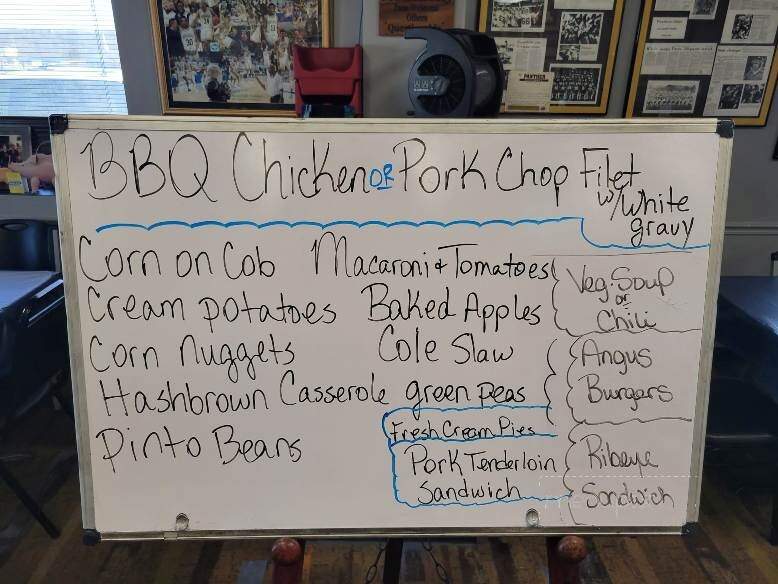 BBQ Chicken OR Pork Chop Filet
w/White
gravy
Corn on Cob Macaroni & Tomatoes
Veg. Soup
or
Chili
Cream potatoes Baked Apples
Corn nuggets Cole Slaw
Angus
Burgers
Hashbrown Casserole green peas
Fresh Cream Pies
Pinto Beans
Pork Tenderloin
Sandwich
Ribeye
Sandwich